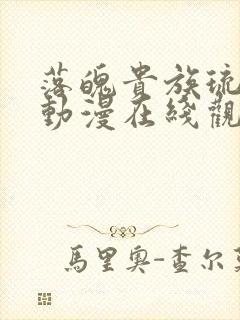 落魄貴族琉
動漫在綫觀
馬里奧-查尔莫